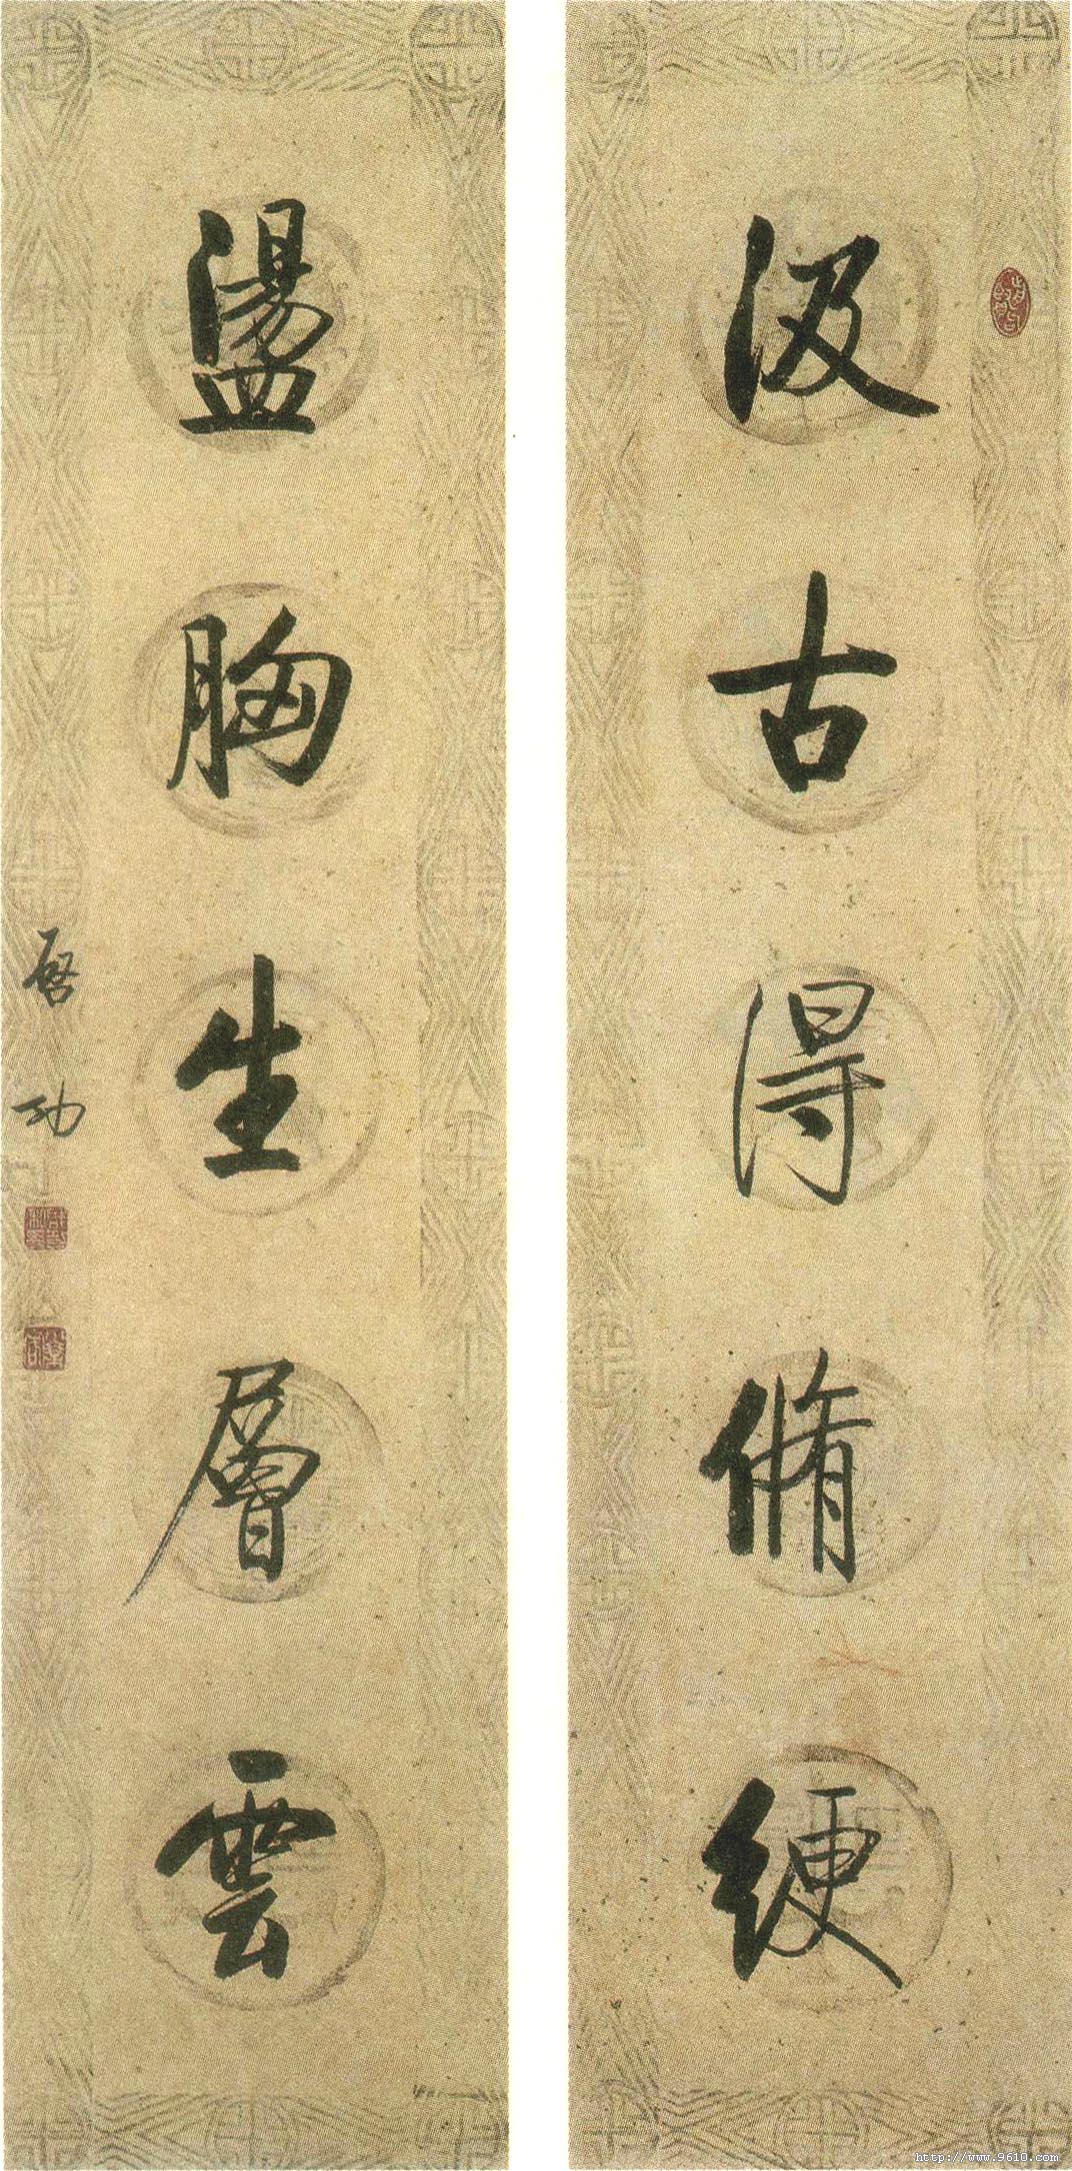 汲古得脩綆
盪胸生層雲
啓功
http://www.9610.com